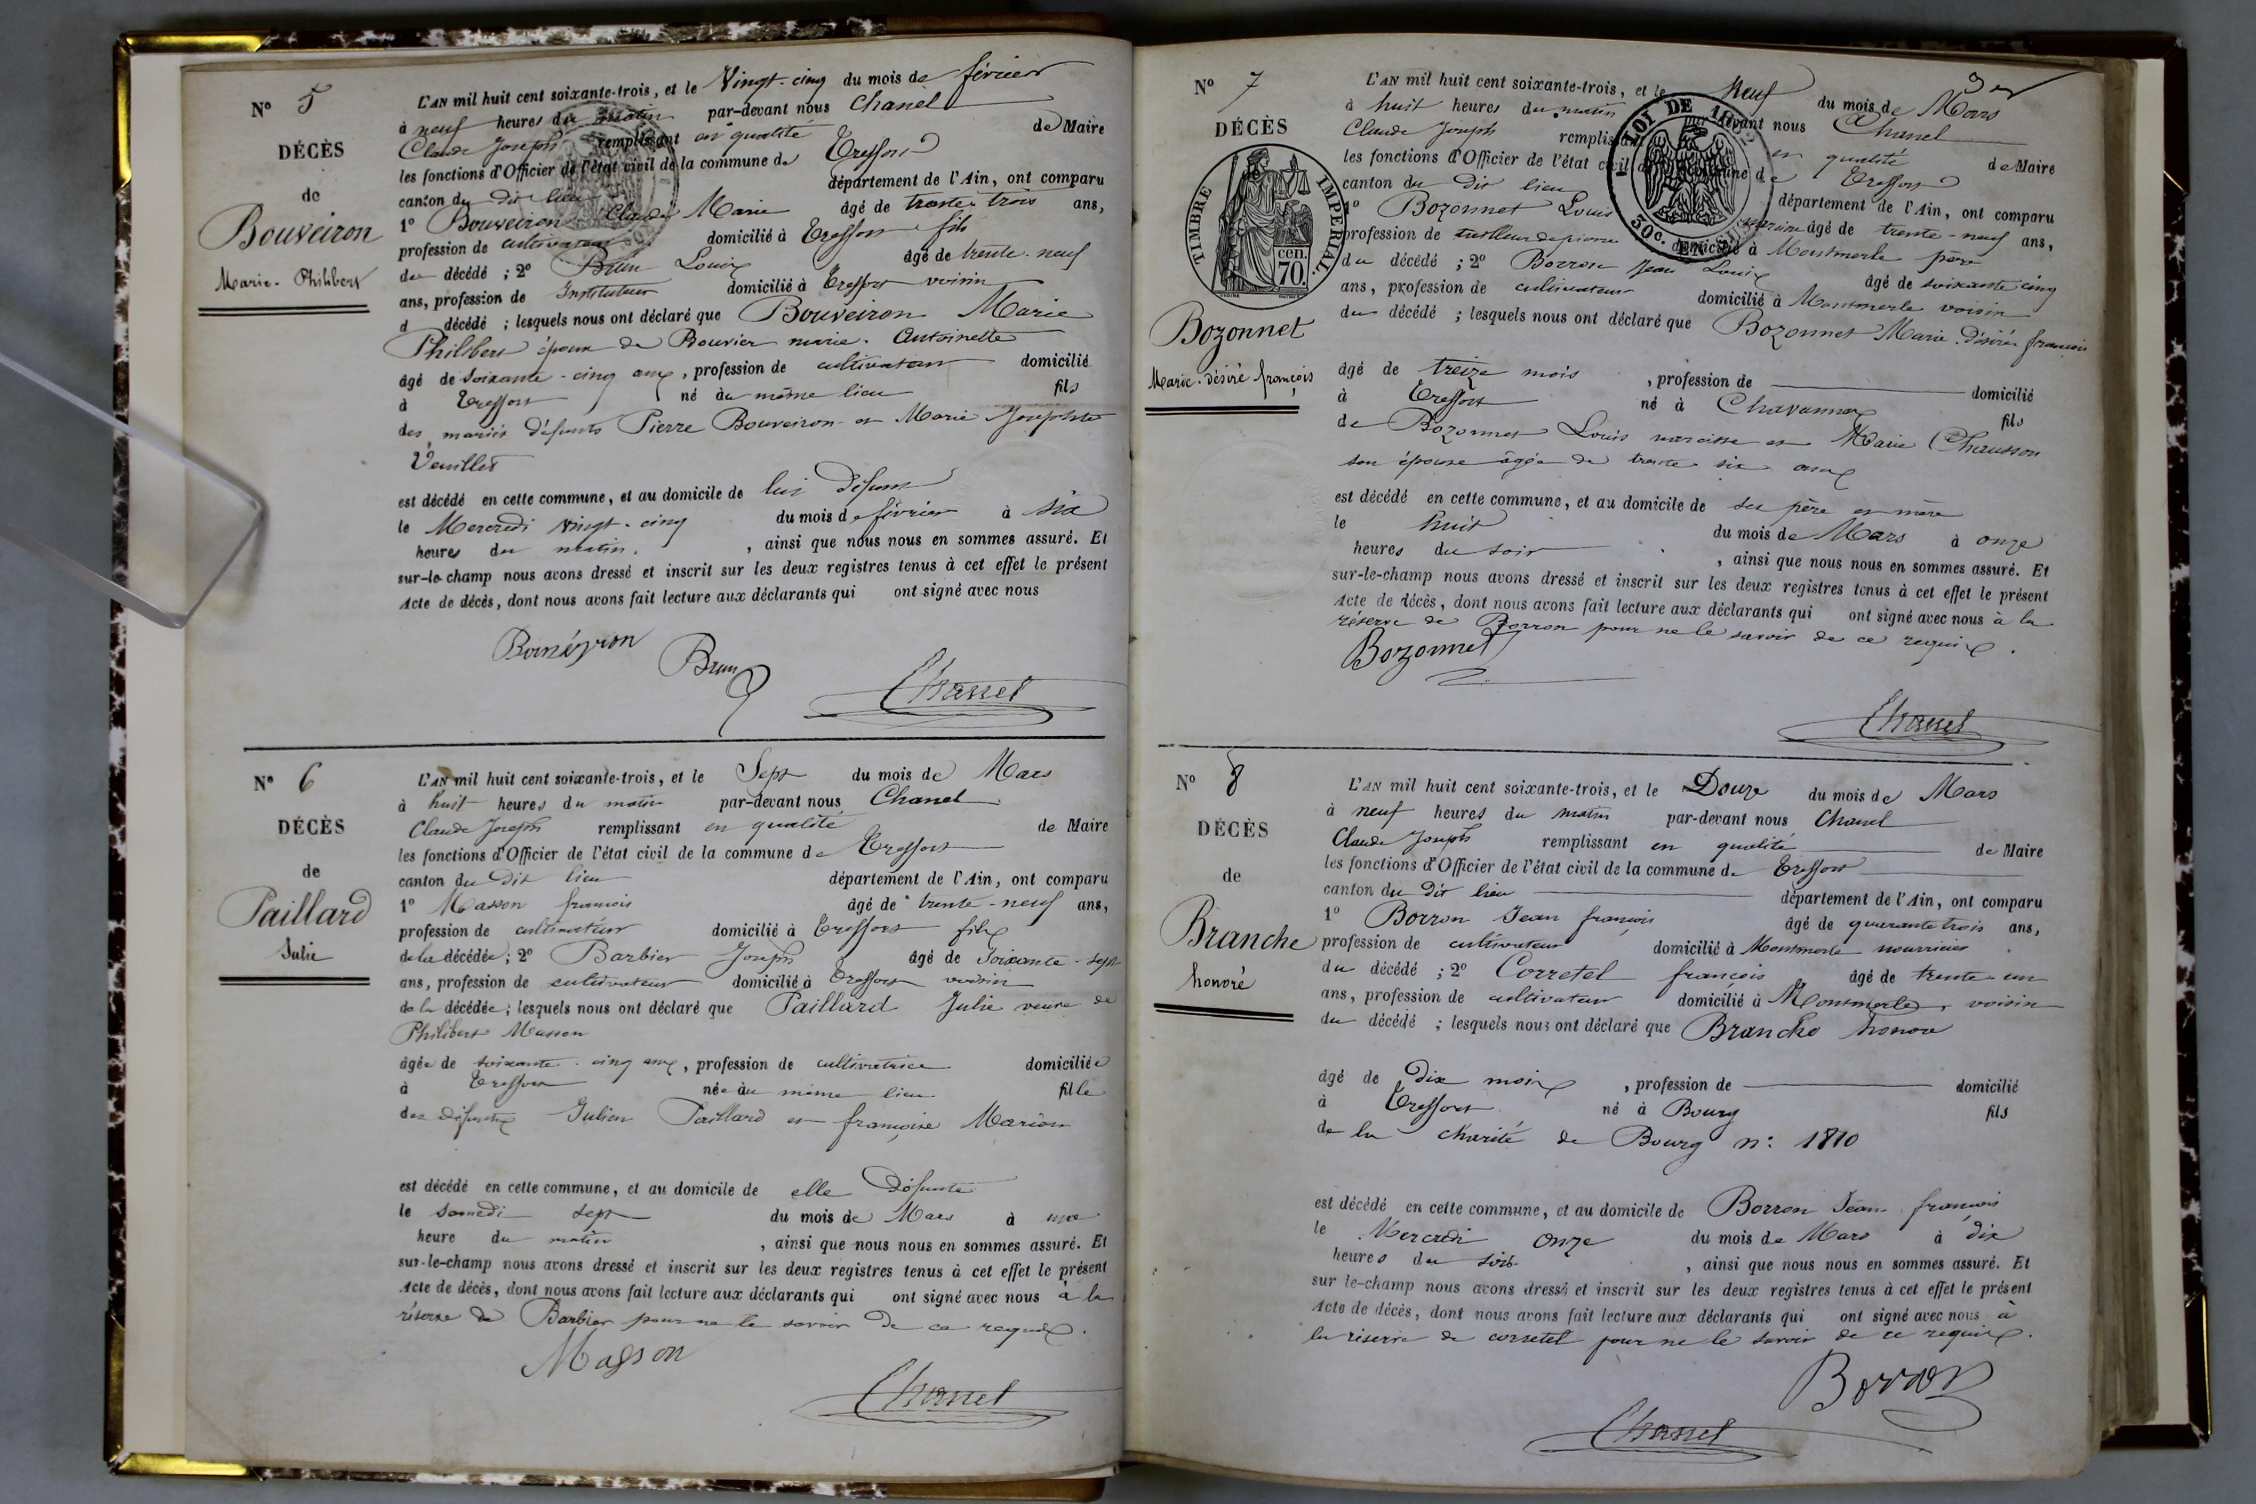 N° 5
DÉCÈS
de
Bouveiron
Marie-Philibert
L'AN mil huit cent soixante-trois, et le Vingt-cinq du mois de février
à neuf heures du matin par-devant nous Chanel
Claude Joseph remplissant en qualité de Maire
les fonctions d'Officier de l'état civil de la commune de Treffort
canton du dit lieu département de l'Ain, ont comparu
1° Bouveiron Claude Marie âgé de trente-trois ans,
profession de cultivateur domicilié à Treffort fils
du décédé ; 2° Brun Louis âgé de trente-neuf
ans, profession de Instituteur domicilié à Treffort voisin
d décédé ; lesquels nous ont déclaré que Bouveiron Marie
Philibert époux de Bouvier marie-Antoinette
âgé de soixante-cinq ans, profession de cultivateur domicilié
à Treffort né au même lieu fils
des mariés défunts Pierre Bouveiron et Marie Josephte
Veuillet
est décédé en cette commune, et au domicile de lui défunt
le Mercredi vingt-cinq du mois de février à six
heures du matin, ainsi que nous nous en sommes assuré. Et
sur-le-champ nous avons dressé et inscrit sur les deux registres tenus à cet effet le présent
Acte de décès, dont nous avons fait lecture aux déclarants qui ont signé avec nous
Brun
Chanel
N° 6
DÉCÈS
de
Paillard
Julie
L'AN mil huit cent soixante-trois, et le Sept du mois de Mars
à huit heures du matin par-devant nous Chanel
Claude Joseph remplissant en qualité de Maire
les fonctions d'Officier de l'état civil de la commune de Treffort
canton du dit lieu département de l'Ain, ont comparu
1° Masson françois âgé de trente-neuf ans,
profession de cultivateur domicilié à Treffort fils
de la décédée ; 2° Barbier Joseph âgé de soixante-sept
ans, profession de cultivateur domicilié à Treffort voisin
de la décédée ; lesquels nous ont déclaré que Paillard Julie veuve de
Philibert Masson
âgée de soixante-cinq ans, profession de cultivatrice domiciliée
à Treffort née au même lieu fille
des défunts Julien Paillard et françoise Marion
est décédé en cette commune, et au domicile de elle défunte
le samedi sept du mois de Mars à une
heure du matin, ainsi que nous nous en sommes assuré. Et
sur-le-champ nous avons dressé et inscrit sur les deux registres tenus à cet effet le présent
Acte de décès, dont nous avons fait lecture aux déclarants qui ont signé avec nous à la
réserve de Barbier pour ne le savoir de ce requis.
Masson
Chanel
N° 7
DÉCÈS
TIMBRE IMPERIAL.
70 cen.
LOI DE 1862
30c. EN SUS
Bozonnet
Marie-désiré françois
L'AN mil huit cent soixante-trois, et le Neuf du mois de Mars
à huit heures du matin par-devant nous Chanel
Claude Joseph remplissant en qualité de Maire
les fonctions d'Officier de l'état civil de la commune de Treffort
canton du dit lieu département de l'Ain, ont comparu
1° Bozonnet Louis narcisse âgé de trente-neuf ans,
profession de tailleur de pierre domicilié à Montmerle père
du décédé ; 2° Borron Jean Louis âgé de soixante-cinq
ans, profession de cultivateur domicilié à Montmerle voisin
du décédé ; lesquels nous ont déclaré que Bozonnet Marie-désiré françois
âgé de treize mois, profession de domicilié
à Treffort né à Chavannes fils
de Bozonnet Louis narcisse et Marie Chausson
son épouse âgée de trente-six ans
est décédé en cette commune, et au domicile de ses père et mère
le huit du mois de Mars à onze
heures du soir, ainsi que nous nous en sommes assuré. Et
sur-le-champ nous avons dressé et inscrit sur les deux registres tenus à cet effet le présent
Acte de décès, dont nous avons fait lecture aux déclarants qui ont signé avec nous à la
réserve de Borron pour ne le savoir de ce requis.
Bozonnet
Chanel
N° 8
DÉCÈS
de
Branche
honoré
L'AN mil huit cent soixante-trois, et le Douze du mois de Mars
à neuf heures du matin par-devant nous Chanel
Claude Joseph remplissant en qualité de Maire
les fonctions d'Officier de l'état civil de la commune de Treffort
canton du dit lieu département de l'Ain, ont comparu
1° Borron Jean françois âgé de quarante trois ans,
profession de cultivateur domicilié à Montmerle nourricier
du décédé ; 2° Corretel françois âgé de trente-un
ans, profession de cultivateur domicilié à Montmerle, voisin
du décédé ; lesquels nous ont déclaré que Branche honoré
âgé de dix mois, profession de domicilié
à Treffort né à Bourg fils
de la charité de Bourg n: 1810
est décédé en cette commune, et au domicile de Borron Jean françois
le Mercredi onze du mois de Mars à dix
heures du soir, ainsi que nous nous en sommes assuré. Et
sur le-champ nous avons dressé et inscrit sur les deux registres tenus à cet effet le présent
Acte de décès, dont nous avons fait lecture aux déclarants qui ont signé avec nous à
la réserve de corretel pour ne le savoir de ce requis.
Borron
Chanel